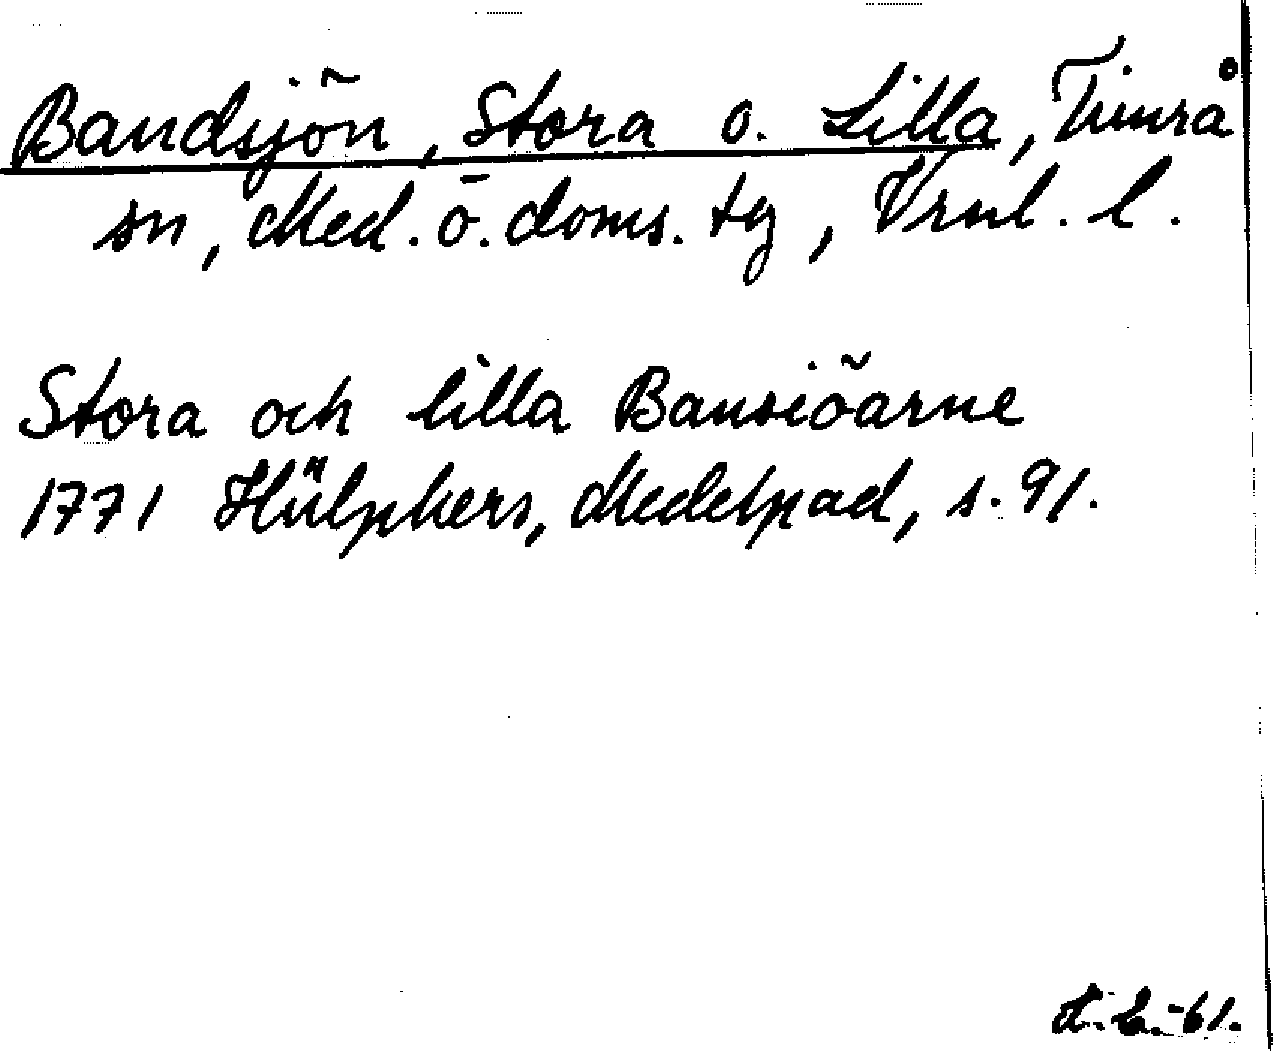 Bandsjön, Stora o. Lilla, Timrå
sn, Med. ö. doms. tg, Vrnl. l.
Stora och lilla Bansiöarne
1771 Hülphers, Medelpad, s. 91.
-61.